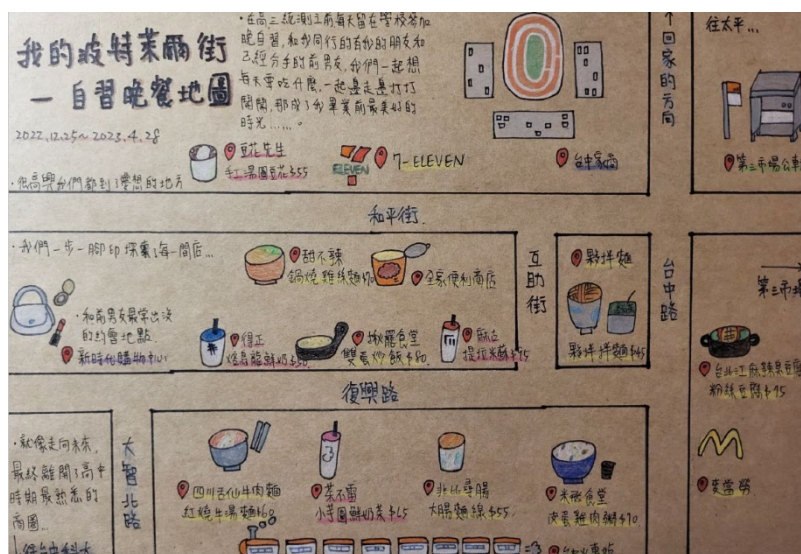 我的波特萊爾街
一自習晚餐地圖
2022.12.25~2023.4.28
·在高三統測之前每天留在學校參加
晚自習,和我同行的有我的朋友和
已經分手的前男友,我們一起想
每天要吃什麼,一起邊走邊打打
鬧鬧,那成了我畢業前最美好的
時光......。
·很高興我們都到了夢想的地方
豆花先生
紅湯圓豆花$55
ELEVEN
7-ELEVEN
台中家商
個回家的方向
往太平...
第三市場公車
和平街
·我們一步一腳印探索了每一間店...
甜不辣
鍋燒雞絲麵$70
全家便利商店
·和前男友最常出沒
的約會地點
新時代購物中心
得正
焙烏龍鮮奶$50
揪饕食堂
雙蛋炒飯$80
麻古
提拉米蘇$75
互助街
夥拌麵
夥拌拌麵$45
台中路
第三市場
台北江麻辣臭豆腐
粉絲豆腐$75
麥當勞
復興路
·就像走向未來,
最終離開了高中
時期最熟悉的
商圈...
大智北路
四川古仙牛肉麵
紅燒牛湯麵$60
茶不雷
小芋圓鮮奶茶$65
非比尋腸
大腸麵線$55
米階食堂
皮蛋雞肉粥$70
往台中科大
台中火車站